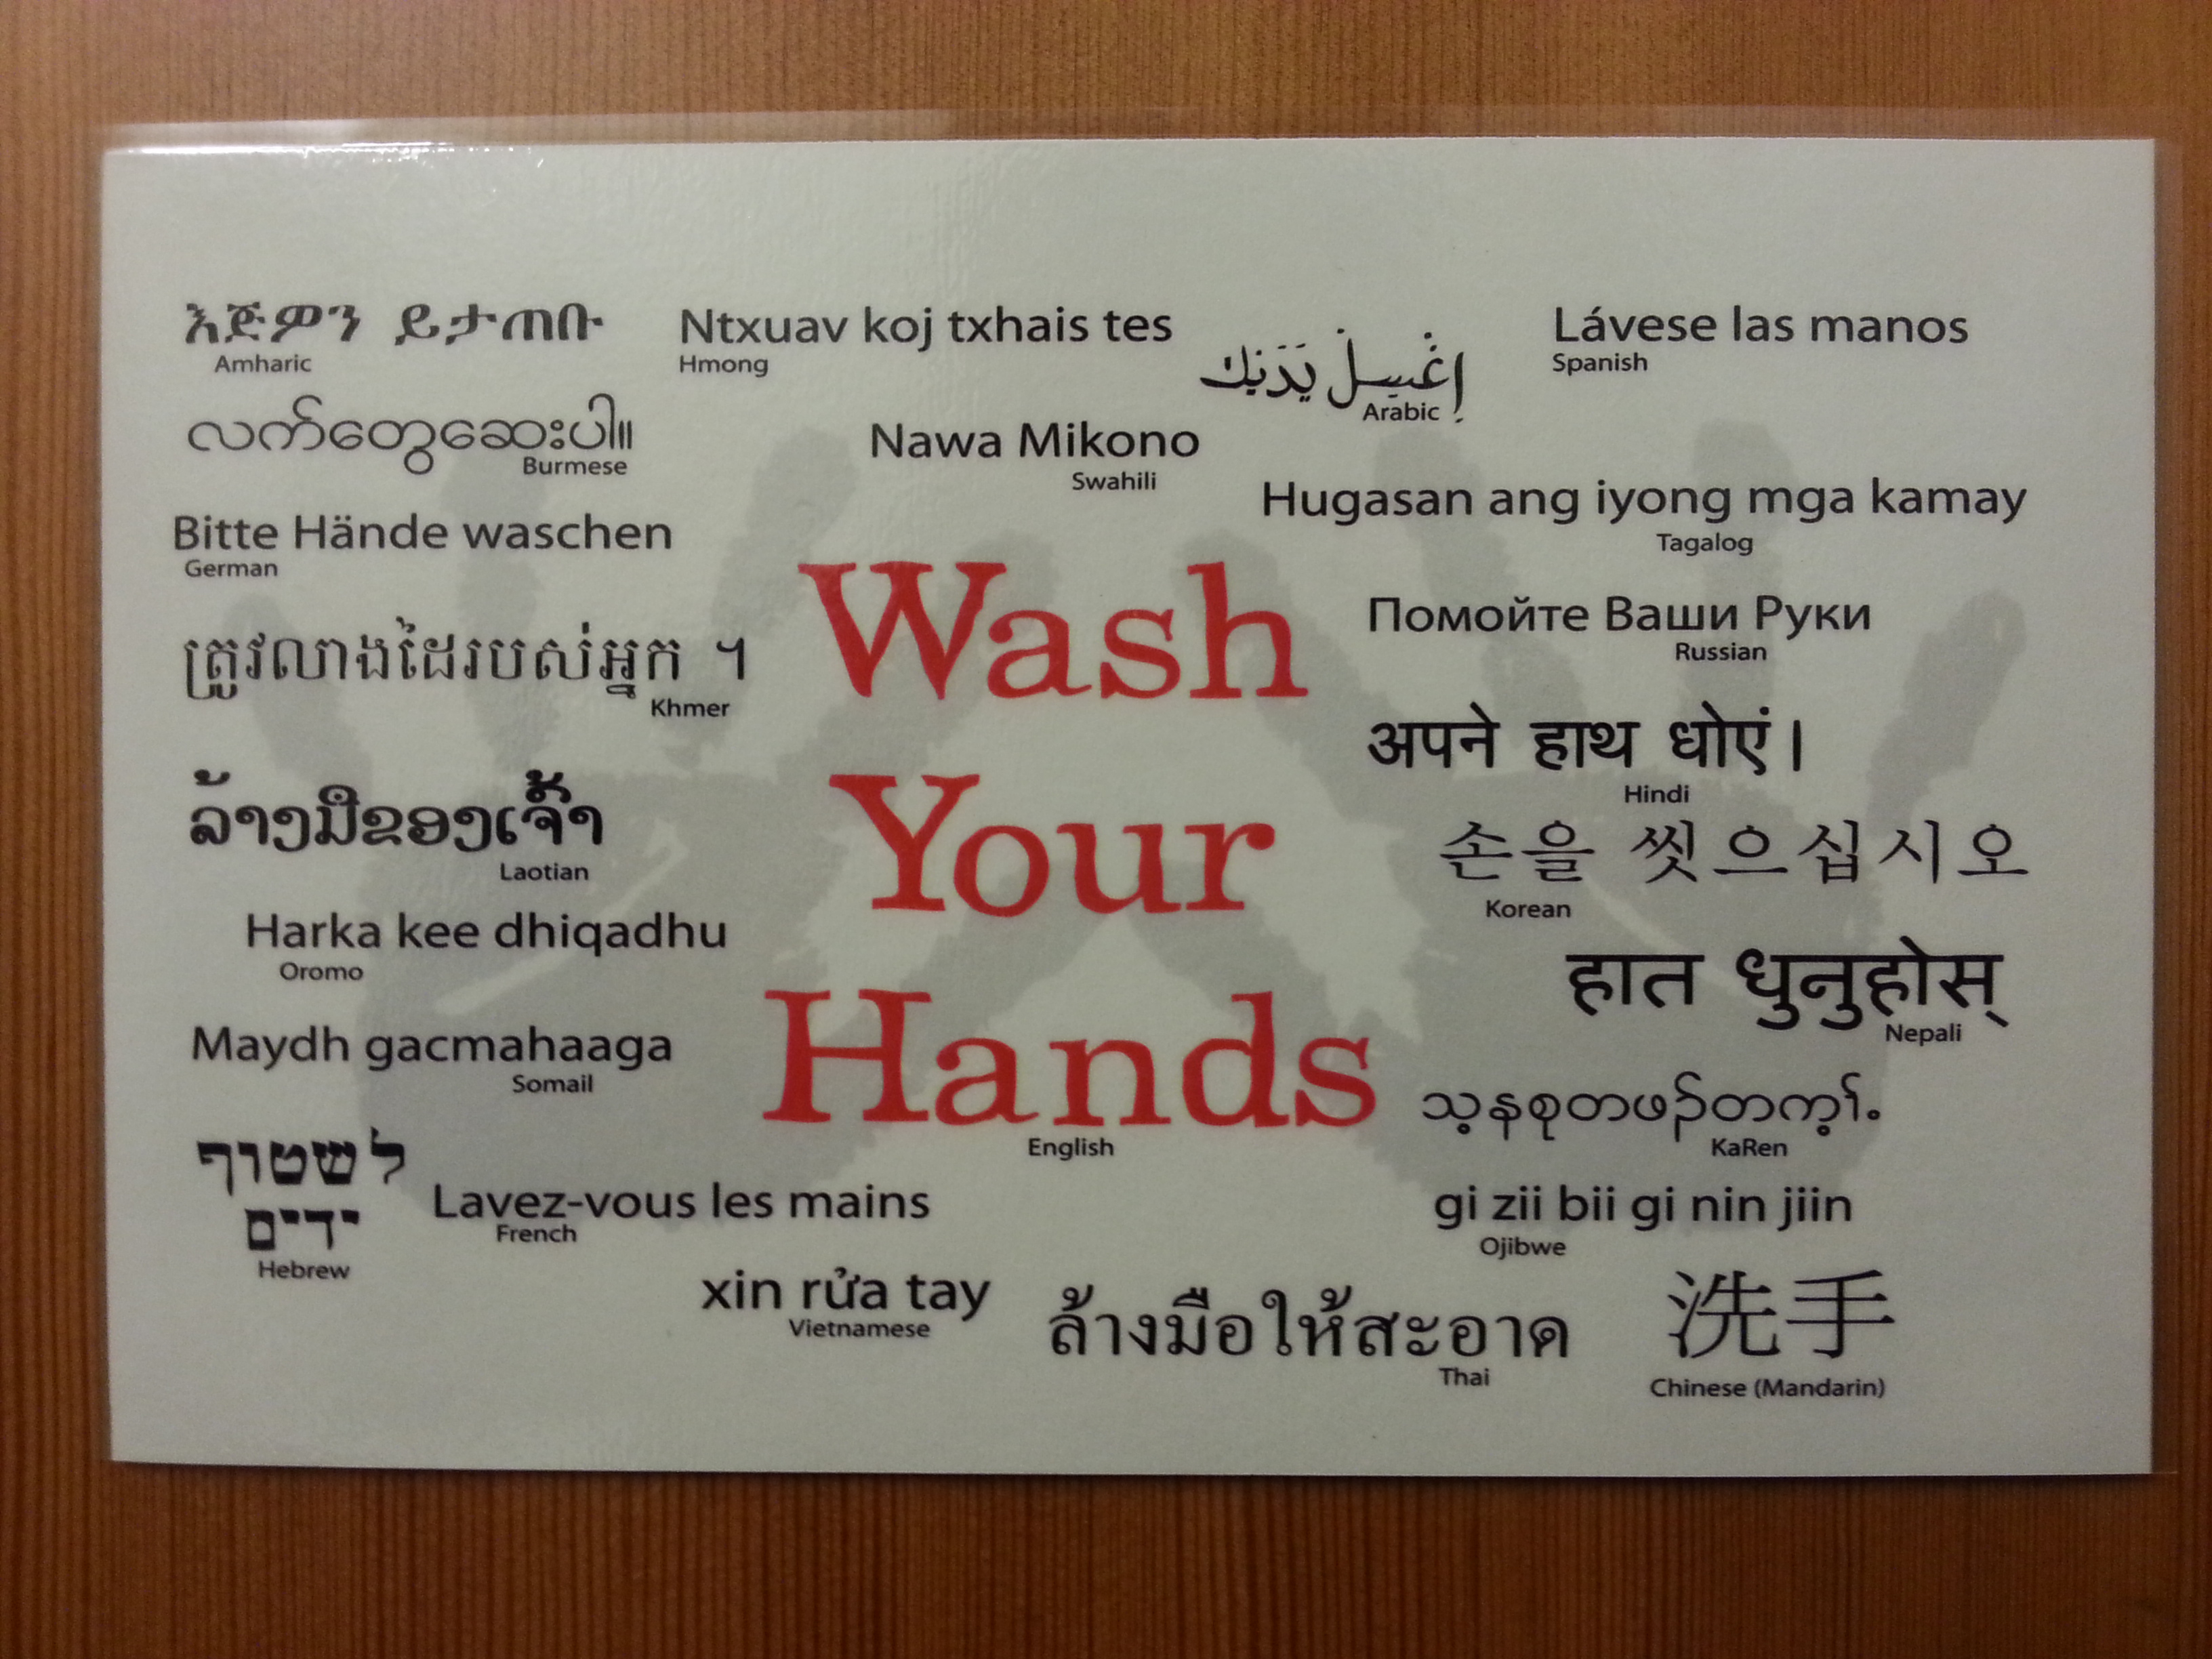 እጅዎን ይታጠቡ
Amharic
Ntxuav koj txhais tes
Hmong
إغْسِلْ يَدَيْك
Arabic
Lávese las manos
Spanish
လက်တွေဆေးပါ။
Burmese
Nawa Mikono
Swahili
Hugasan ang iyong mga kamay
Tagalog
Bitte Hände waschen
German
Wash
Your
Hands
English
Помойте Ваши Руки
Russian
ត្រូវលាងដៃរបស់អ្នក ។
Khmer
अपने हाथ धोएं।
Hindi
ລ້າງມືຂອງເຈົ້າ
Laotian
손을 씻으십시오
Korean
Harka kee dhiqadhu
Oromo
हात धुनुहोस्
Nepali
Maydh gacmahaaga
Somail
KaRen
לשטוף
ידיים
Hebrew
Lavez-vous les mains
French
gi zii bii gi nin jiin
Ojibwe
xin rửa tay
Vietnamese
ล้างมือให้สะอาด
Thai
洗手
Chinese (Mandarin)